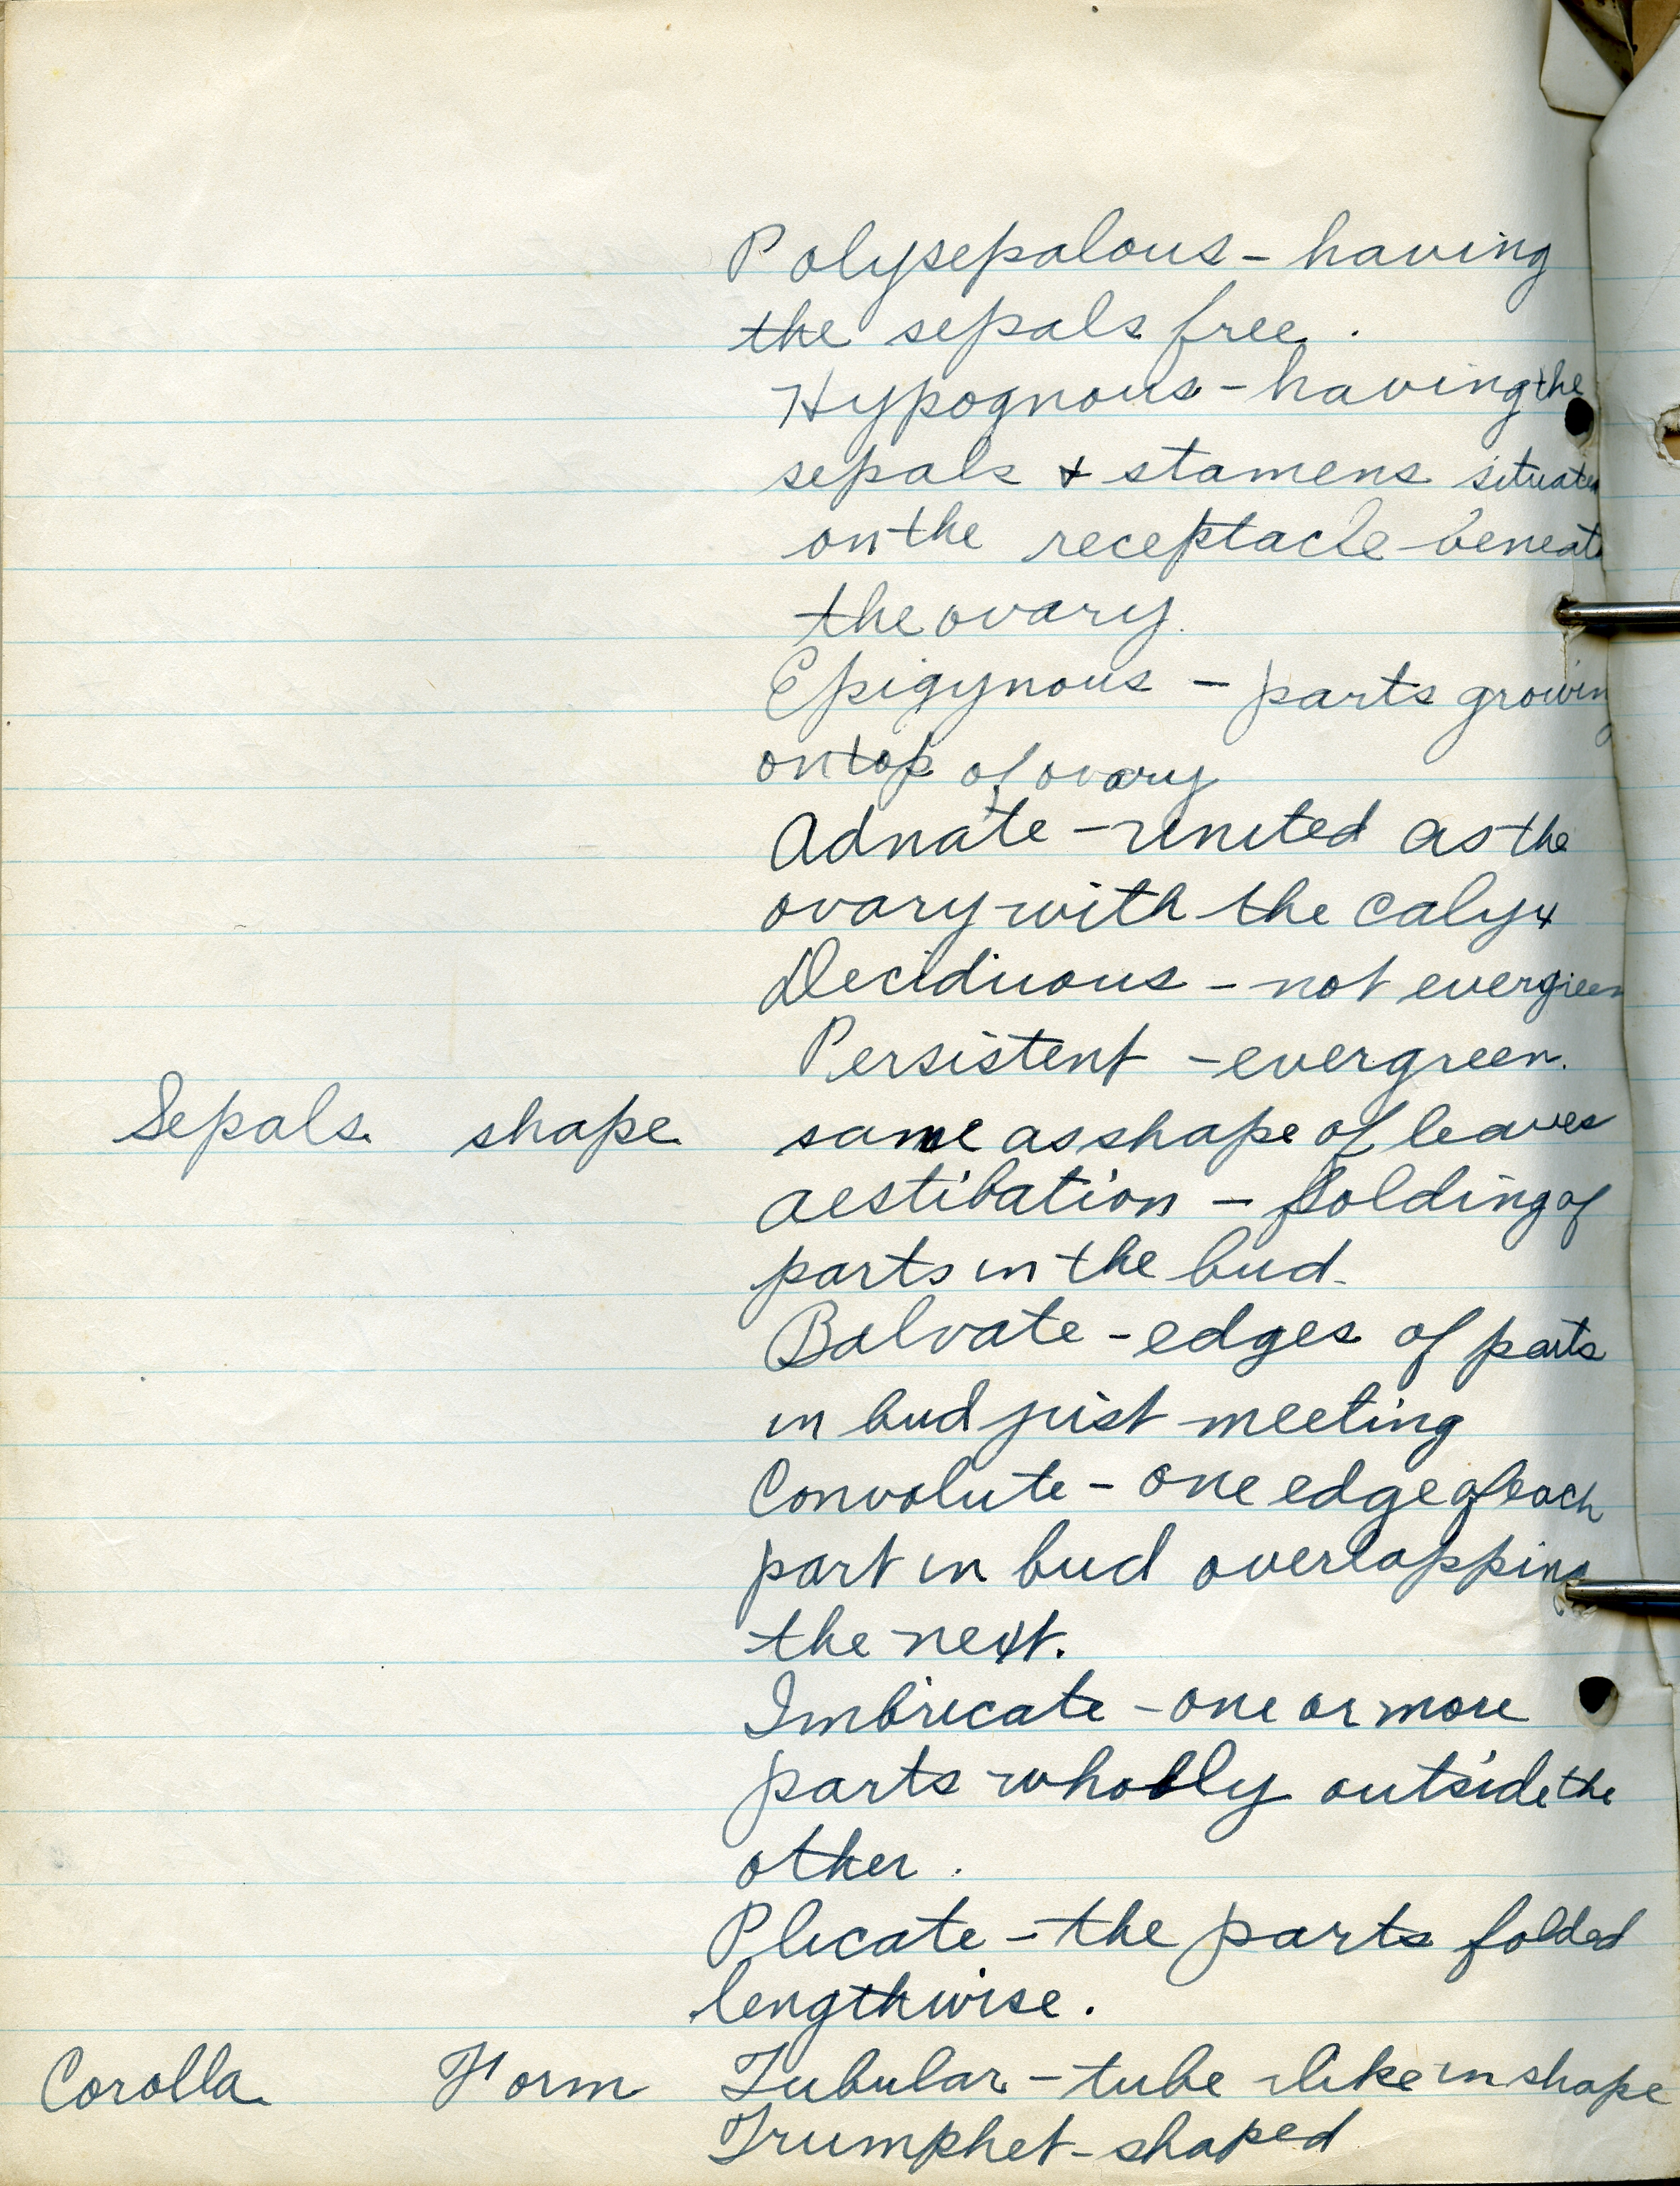 Polysepalous - having
the sepals free.
Hypognous - having the
sepals + stamens situated
on the receptacle beneath
the ovary.
Epigynous - parts growing
on top of ovary
Adnate - united as the
ovary with the calyx
Deciduous - not evergreen
Persistent - evergreen.
Sepals shape same as shape of leaves
aestibation - folding of
parts in the bud.
Balvate - edges of parts
in bud just meeting
Convolute - one edge of each
part in bud overlapping
the next.
Imbricate - one or more
parts wholly outside the
other.
Plicate - the parts folded
lengthwise.
Corolla Form Tubular - tube like in shape
Trumphet - shaped